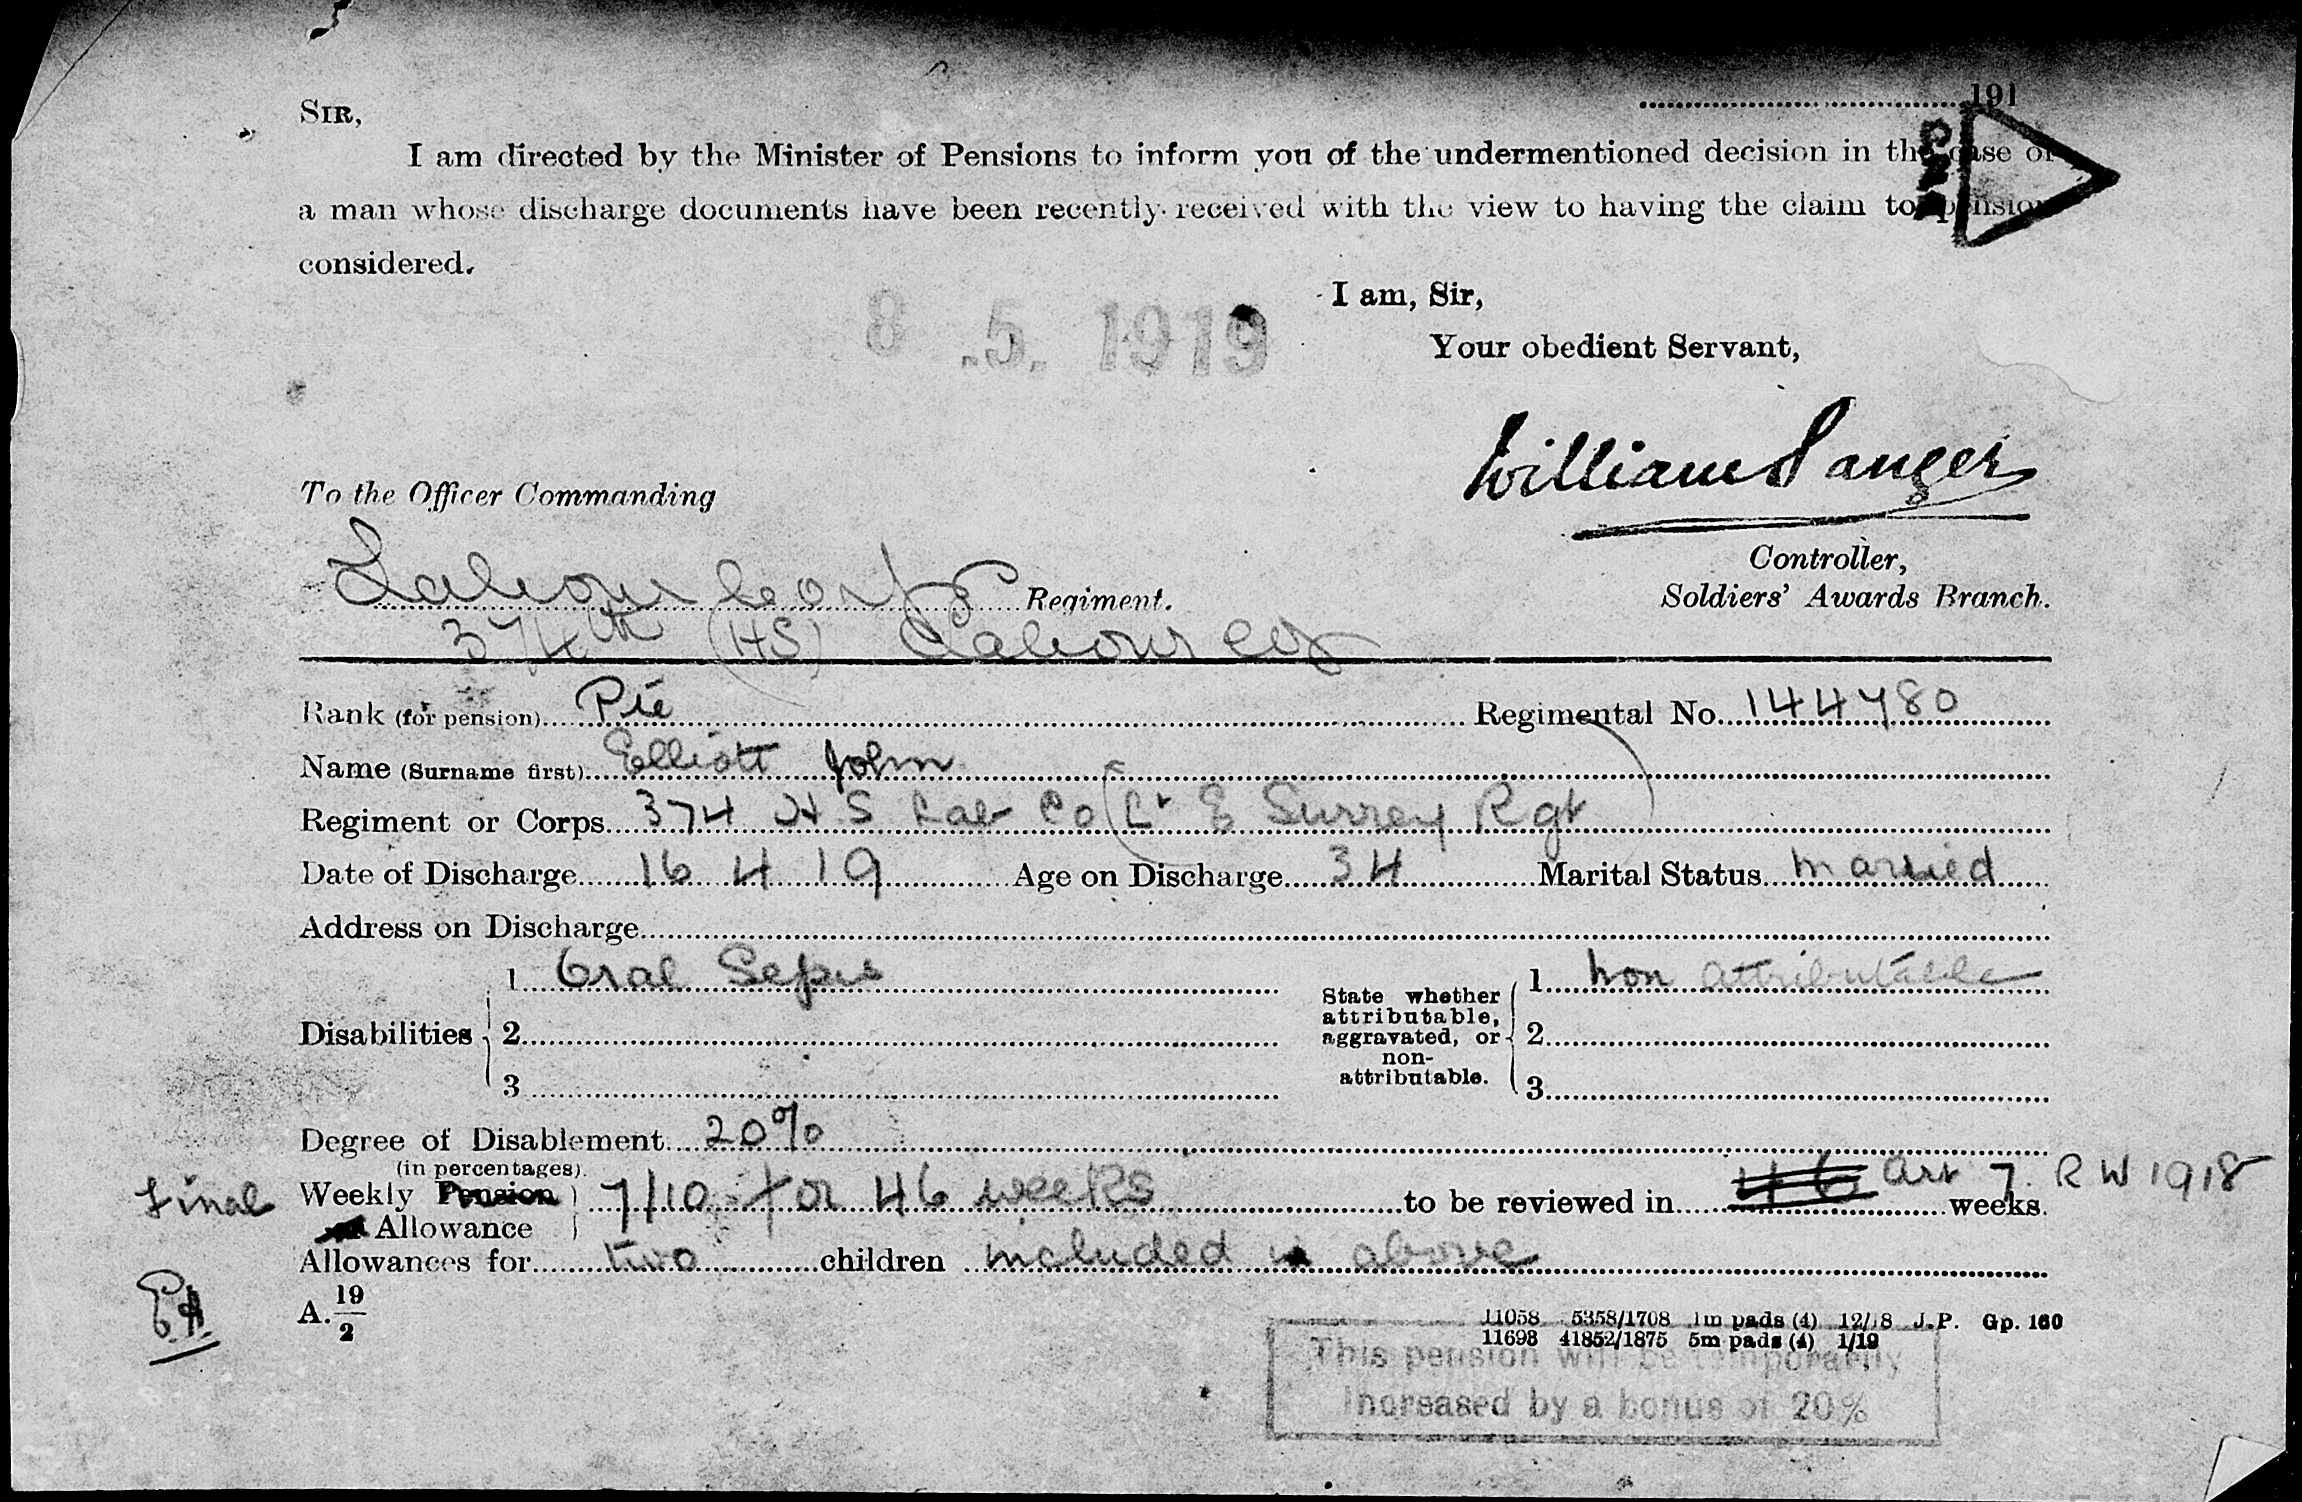 191
SIR,
I am directed by the Minister of Pensions to inform you of the undermentioned decision in the case of
a man whose discharge documents have been recently received with the view to having the claim to pension
considered.
I am, Sir,
8 .5. 1919
Your obedient Servant,
William Sanger
To the Officer Commanding
Controller,
Labour Corps Regiment.
Soldiers' Awards Branch.
374th (HS) Labour Coy
Rank (for pension) Pte Regimental No. 144780
Name (Surname first) Elliott John
Regiment or Corps 374 H S Lab Co (Lt E Surrey Rgt)
Date of Discharge 16 4 19 Age on Discharge 34 Marital Status married
Address on Discharge
1 Oral Sepsis State whether attributable, aggravated, or non-attributable. 1 non attributable
Disabilities 2 2
3 3
Degree of Disablement 20%
(in percentages).
Final Weekly Pension 7/10 for 46 weeks to be reviewed in 46 weeks. Art 7. R W 1918
Allowance
Allowances for two children included in above
A. 19/2
11058 5358/1708 1m pads (4) 12/18 J.P. Gp. 160
11698 41852/1875 5m pads (4) 1/19
This pension will be temporarily
increased by a bonus of 20%